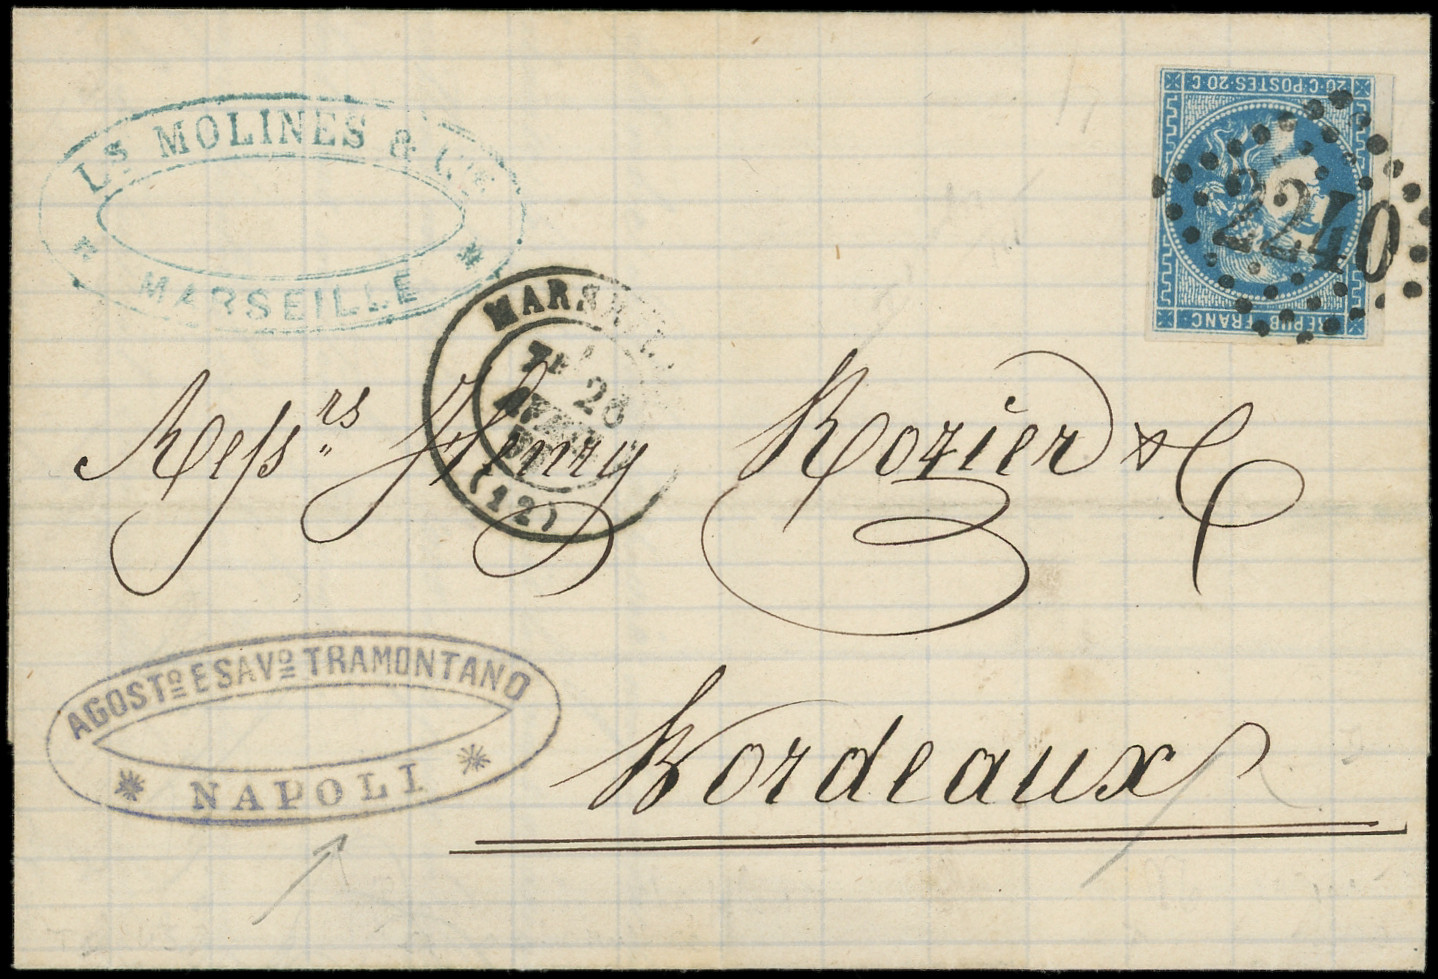 LS MOLINES & CIE
MARSEILLE
20·C·POSTES·20·C
REPUB·FRANC
2240
MARSEILLE
28
(12)
Messrs Henry Rozier & C
AGOSTO E SAVO TRAMONTANO
NAPOLI
Bordeaux